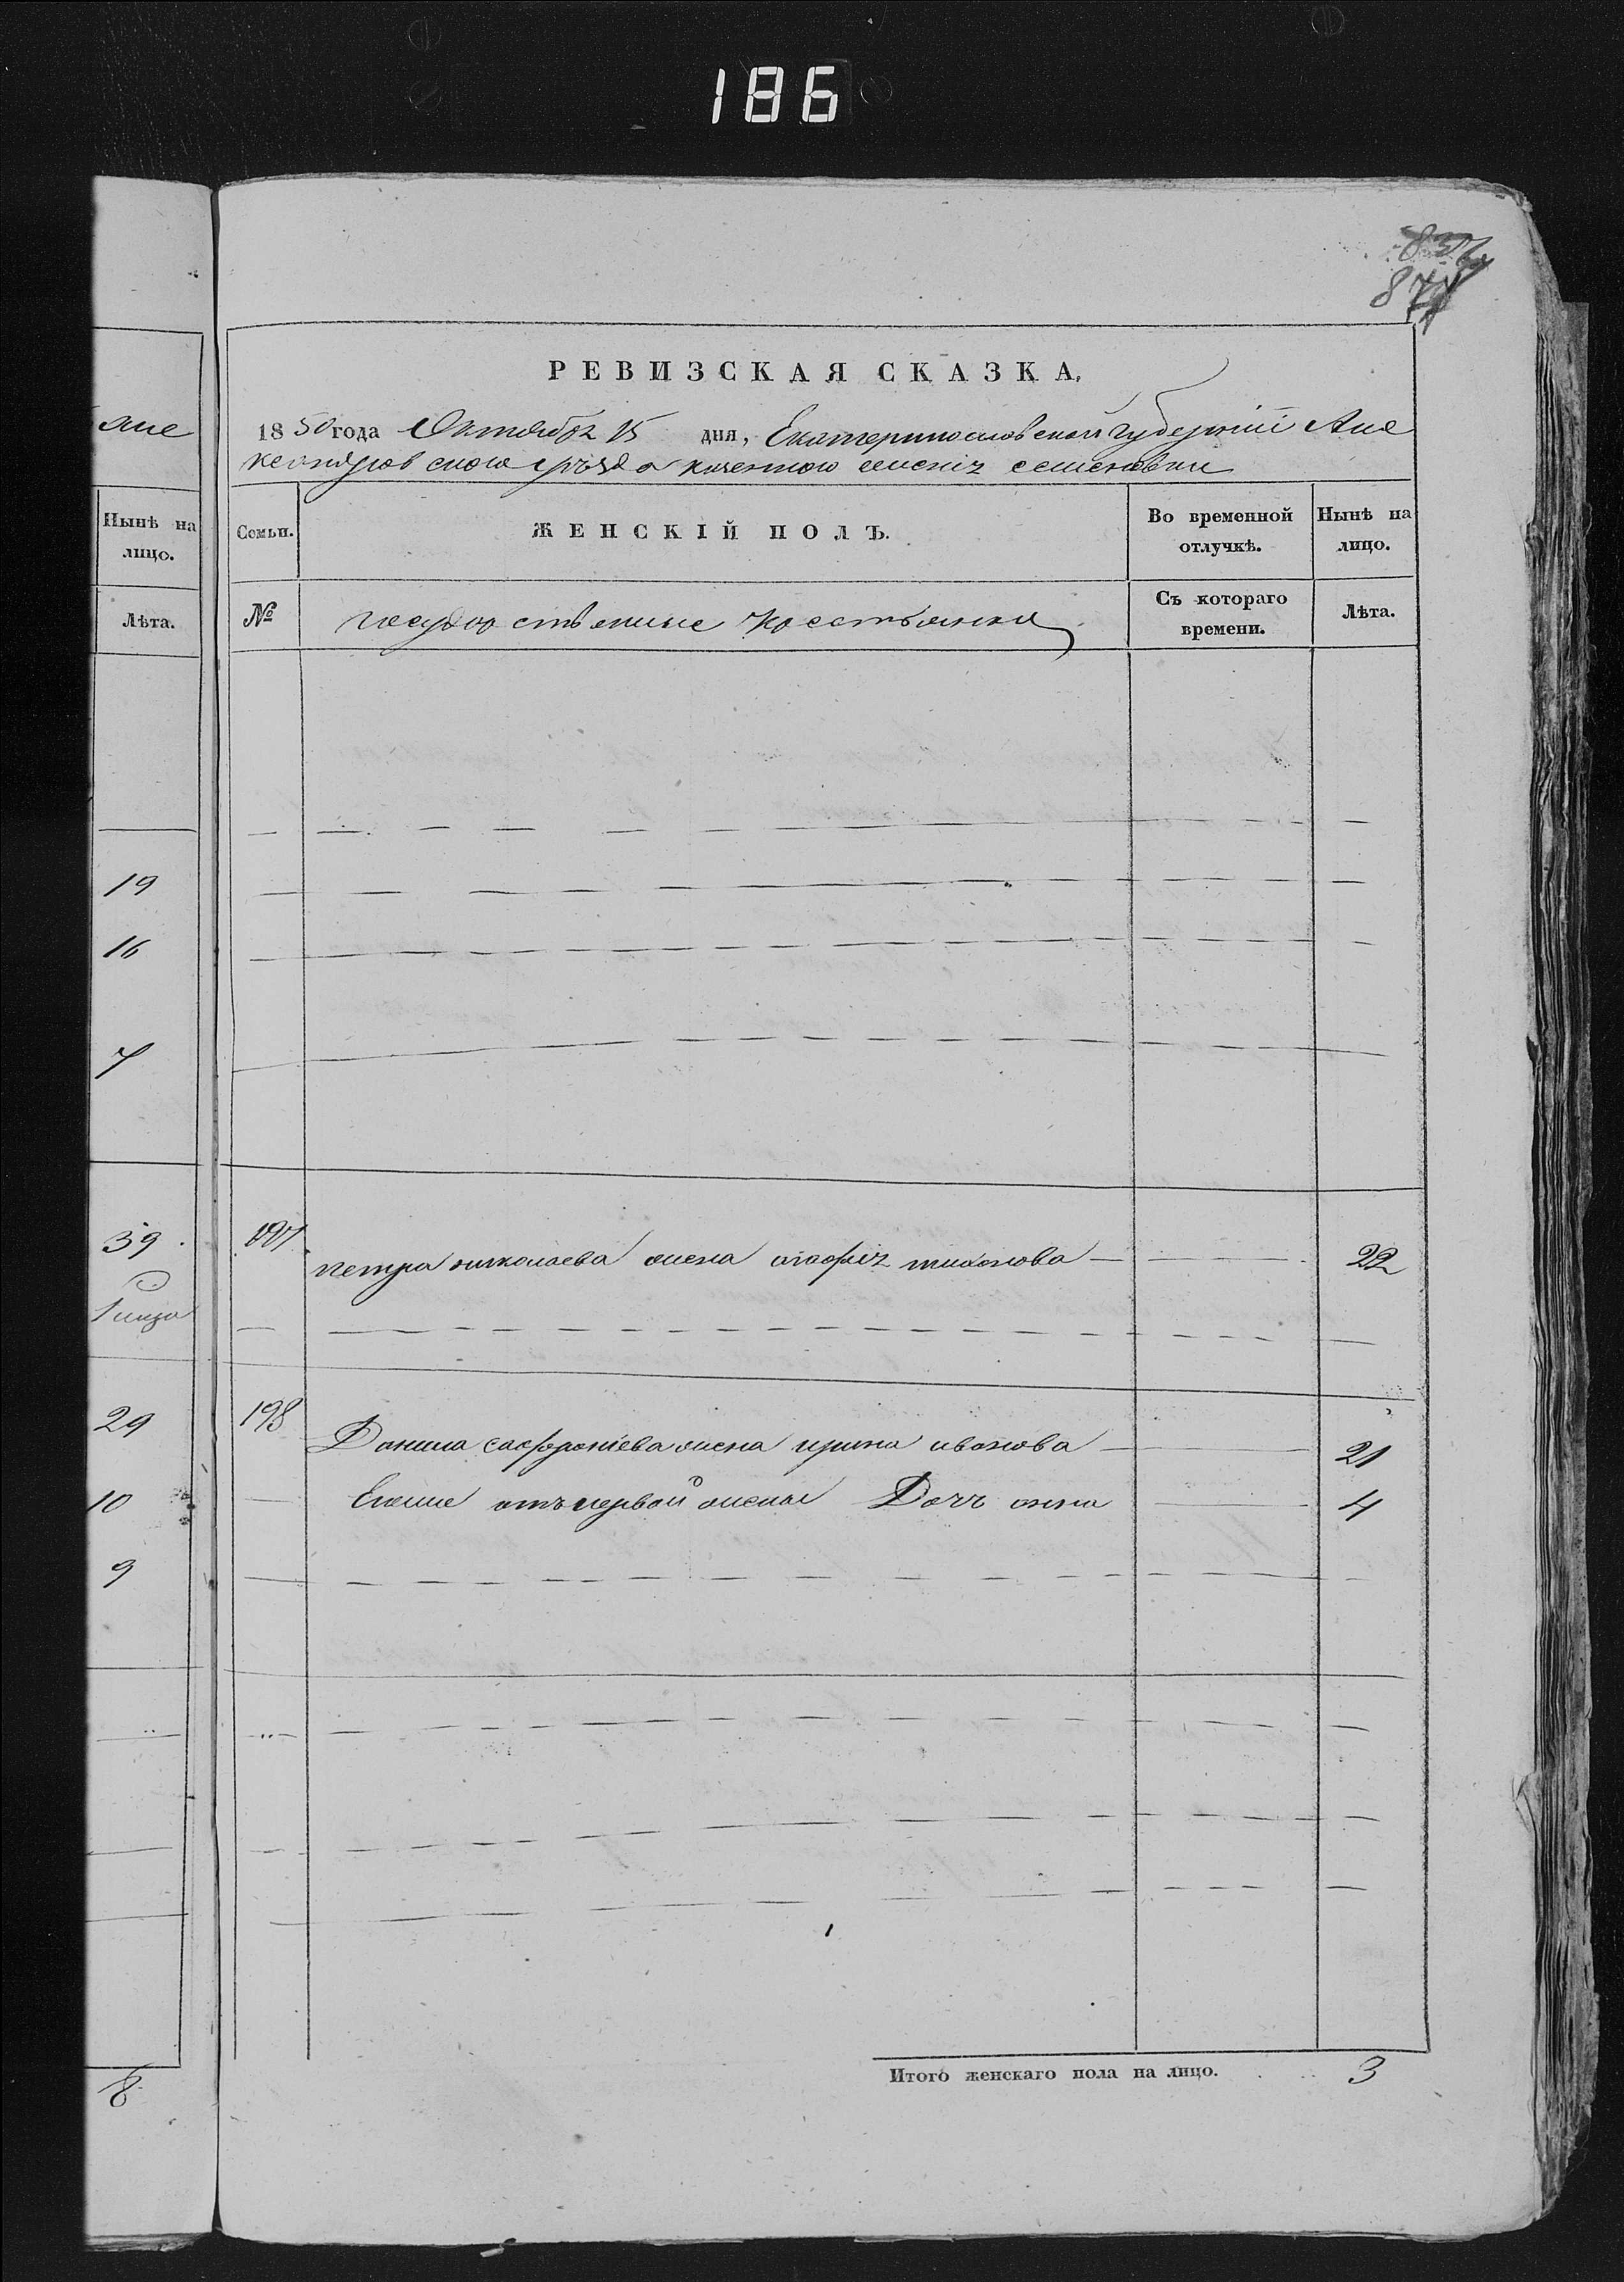 186
837
877
РЕВИЗСКАЯ СКАЗКА.
1850 года Октября 15 дня, Екатеринославской губерніи Але
ксандровского уѣзда казенного селенія семеновки
Нынѣ на
лицо.
Лѣта.
19
16
7
39
29
10
9
8
Семьи. ЖЕНСКІЙ ПОЛЪ. Во временной отлучкѣ. Нынѣ на лицо.
№ государственные крестьянки Съ котораго времени. Лѣта.
197 петра николаева жена агафія тихонова 22
198 Данила сафроніева жена ирина иванова 21
Его же отъ первой жены Дочь анна 4
Итого женскаго пола на лицо. 3